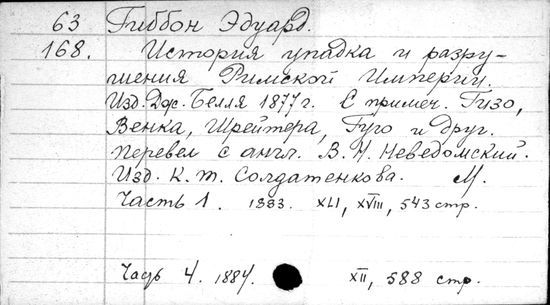 63 Гиббон Эдуард.
168. История упадка и разру-
шения Римской Империи.
Изд. Дж. Белля 1877 г. С примеч. Гизо,
Венка, Шрейтера, Гуго и друг.
Перевел с англ. В. Н. Неведомский.
Изд. К. Т. Солдатенкова. М.
Часть 1. 1883. XLI, XVIII, 543 стр.
Часть 4. 1884. XII, 588 стр.